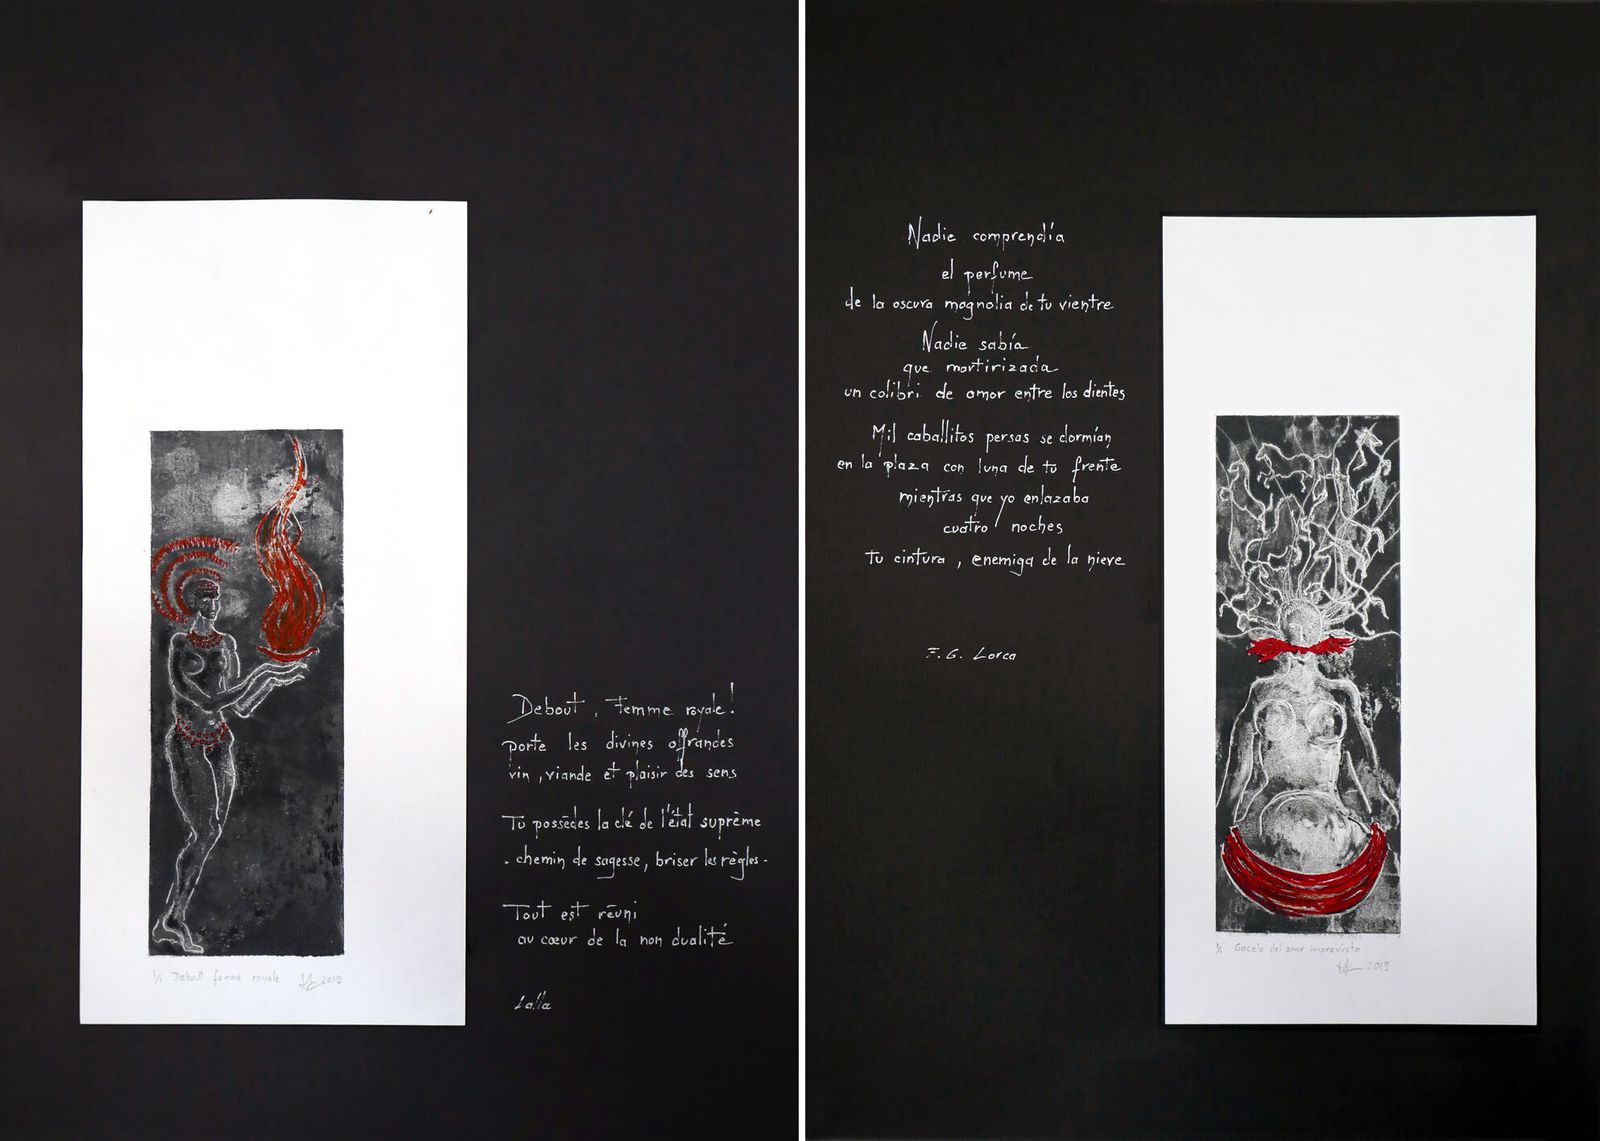 Debout, femme royale!
porte les divines offrandes
vin, viande et plaisir des sens
Tu possèdes la clé de l'état suprême
- chemin de sagesse, briser les règles -
Tout est réuni
au cœur de la non dualité
Lalla
1/1 Debout femme royale 2019
Nadie comprendía
el perfume
de la oscura magnolia de tu vientre
Nadie sabía
que martirizada
un colibri de amor entre los dientes
Mil caballitos persas se dormían
en la plaza con luna de tu frente
mientras que yo enlazaba
cuatro noches
tu cintura, enemiga de la nieve
F. G. Lorca
1/1 Gacela del amor improvisto
2019